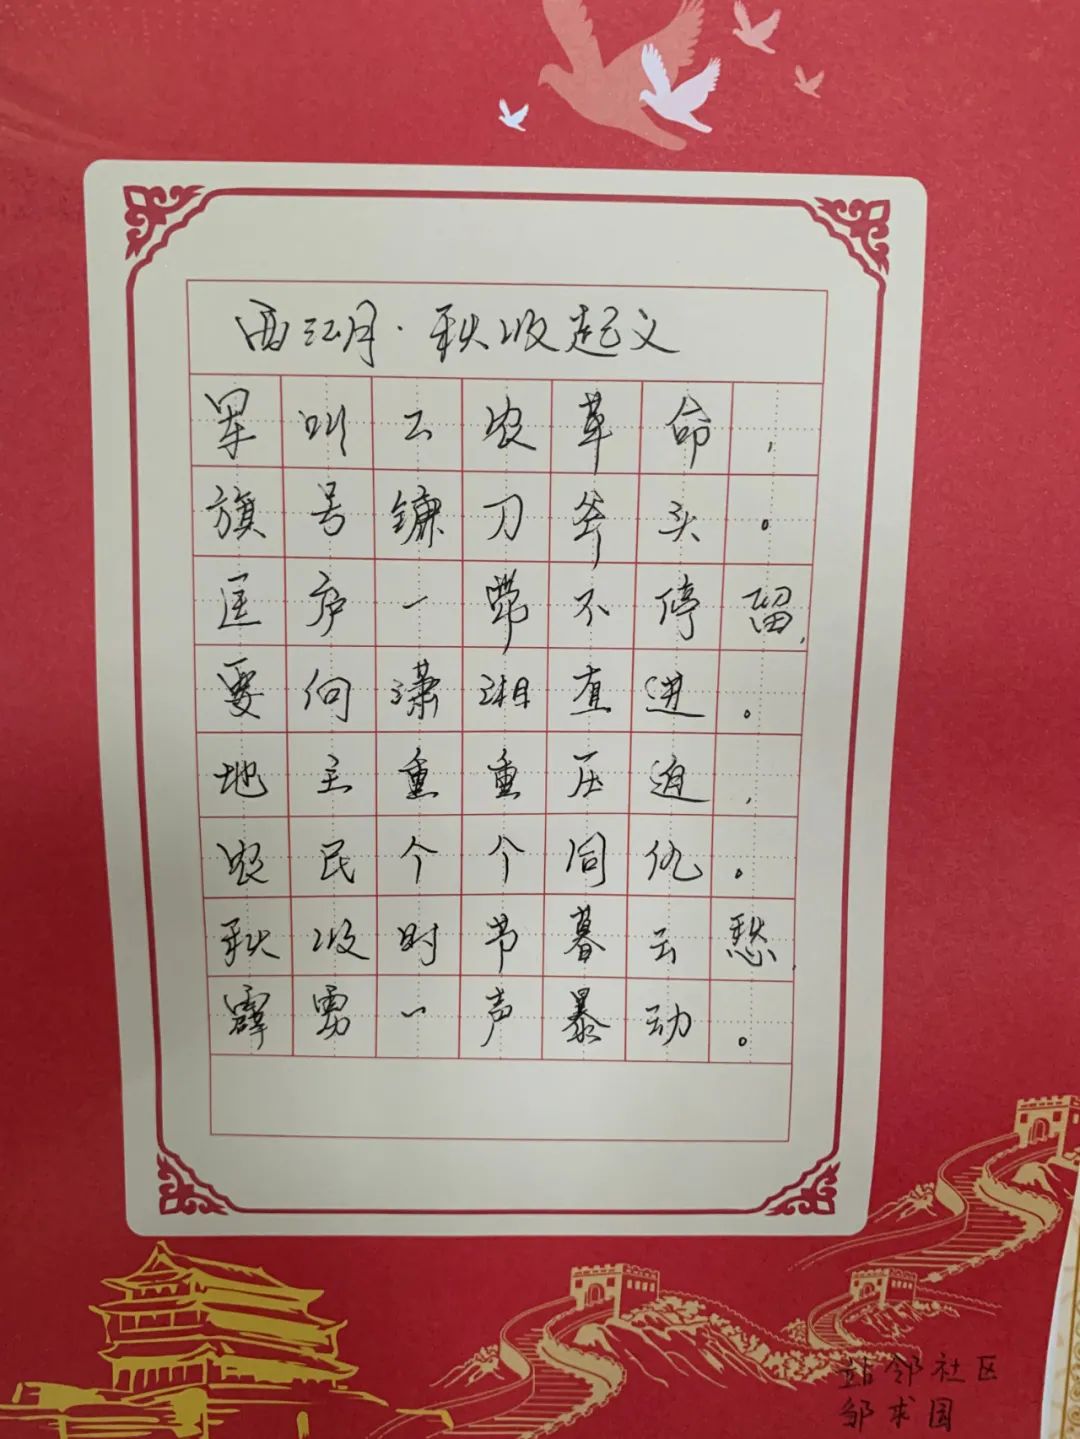 西江月·秋收起义
军叫工农革命，
旗号镰刀斧头。
匡庐一带不停留，
要向潇湘直进。
地主重重压迫，
农民个个同仇。
秋收时节暮云愁，
霹雳一声暴动。
站邻社区
邹求园